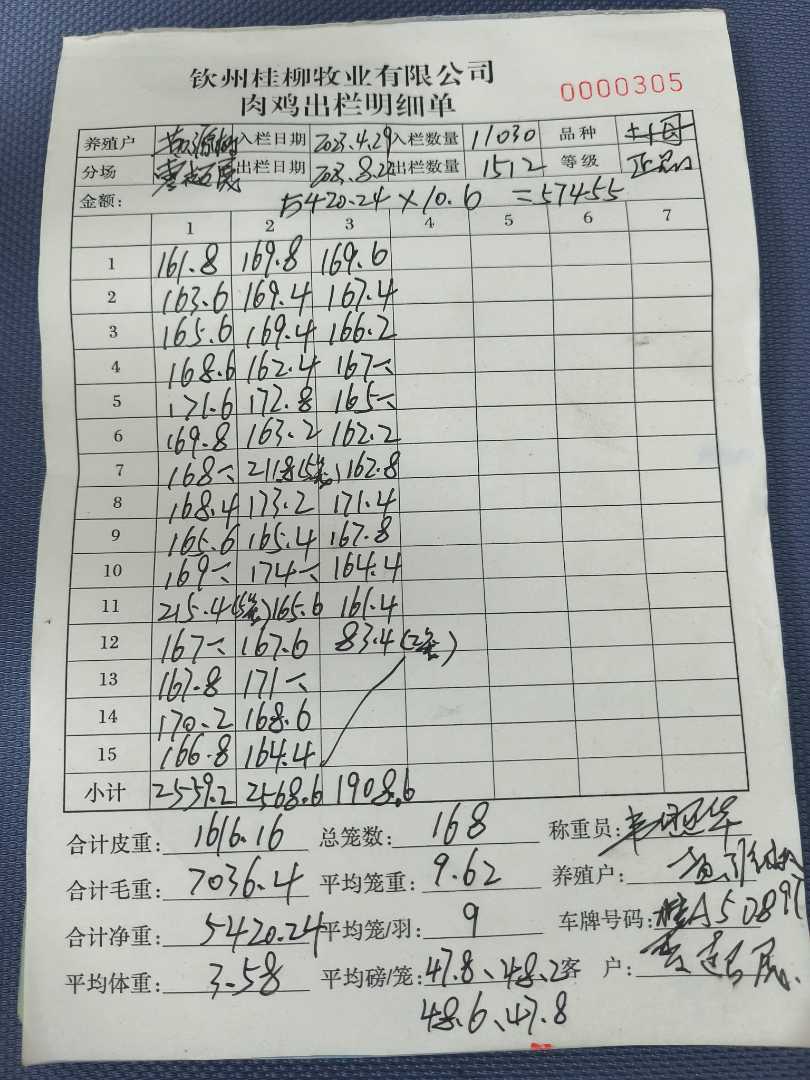 钦州桂柳牧业有限公司
肉鸡出栏明细单 0000305
养殖户 入栏日期 2023.4.29 入栏数量 11030 品种 土1母
分场 出栏日期 2023.8.22 出栏数量 1512 等级 正品
金额: 5420.24×10.6=57455
1 2 3 4 5 6 7
1 161.8 169.8 169.6
2 163.6 169.4 167.4
3 165.6 169.4 166.2
4 168.6 162.4 167-
5 171.6 172.8 165-
6 169.8 163.2 162.2
7 168- 211.8(5笼) 162.8
8 168.4 173.2 171.4
9 165.6 165.4 167.8
10 169- 174- 164.4
11 215.4(5笼) 165.6 161.4
12 167- 167.6 83.4(2笼)
13 167.8 171-
14 170.2 168.6
15 166.8 164.4
小计 2559.2 2568.6 1908.6
合计皮重: 1616.16 总笼数: 168 称重员:
合计毛重: 7036.4 平均笼重: 9.62 养殖户:
合计净重: 5420.24 平均笼/羽: 9 车牌号码: 桂A50897
平均体重: 3.58 平均磅/笼: 47.8、48.2 客 户:
48.6、47.8